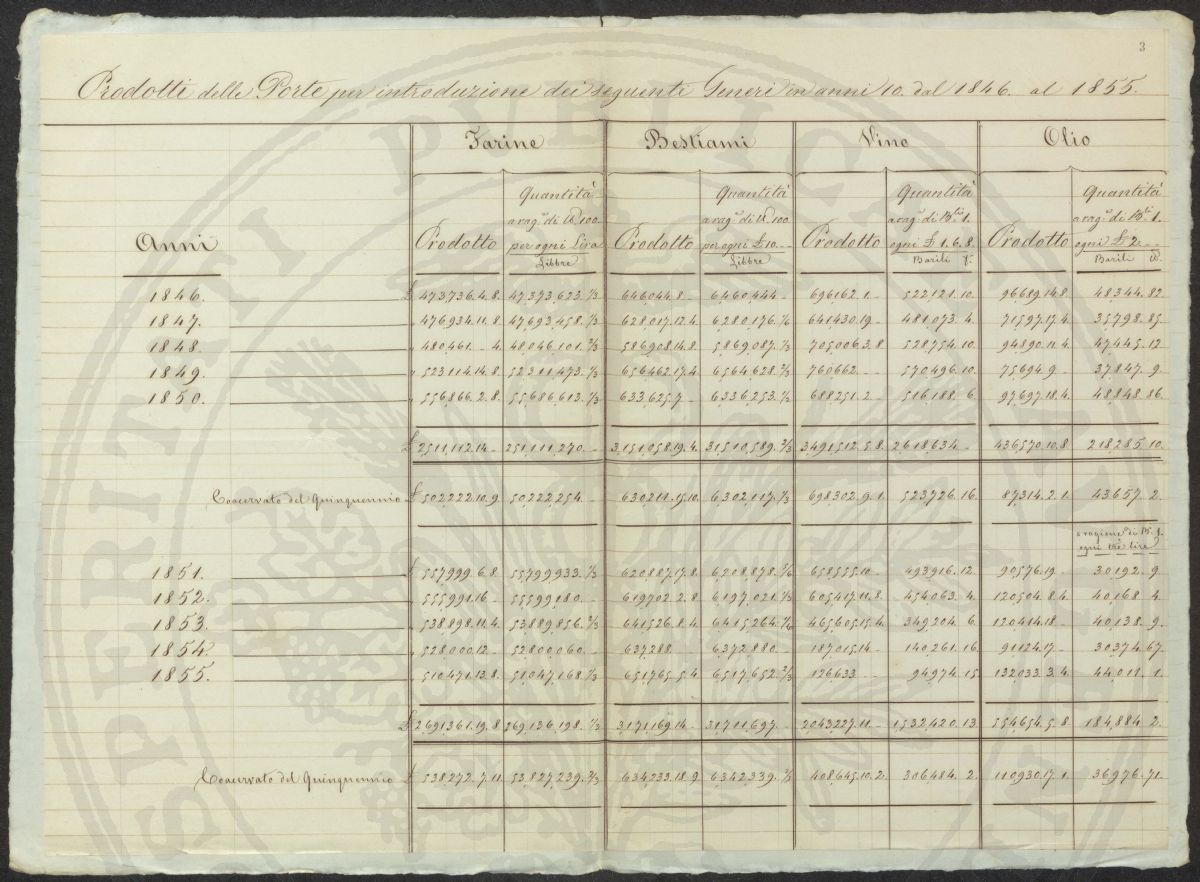 3
Prodotti delle Porte per introduzione dei seguenti Generi in anni 10. dal 1846. al 1855.
Farine Bestiami Vino Olio
Anni Prodotto Quantità a rag.e di lb 100. per ogni Lira Libbre Prodotto Quantità a rag.e di lb 100 per ogni £ 10.-- Libbre Prodotto Quantità a rag.e di B.li 1. ogni £ 1. 6. 8. Barili Prodotto Quantità a rag.e di B.li 1. ogni £ 2.-- Barili
1846. £ 473736.4.8 47,373,623.1/3 646044.8- 6,460,444- 696162.1- 522,121.10. 96,689.14.8 48344.82
1847. " 476934.11.8 47,693,458.1/3 628,017.12.4 6,280,176.1/6 641430.19- 481,073.4. 71,597.17.4 35,798.85
1848. " 480,461.-4. 48,046,101.2/3 586,908.14.8 5,869,087.1/3 705,006.3.8 528,754.10. 94,890.11.4 47,445.12
1849. " 523,114.14.8 52,311,473.1/3 656,462.17.4 6,564,628.2/3 760662-- 570,496.10. 75,694.9- 37,847.9.
1850. " 556,866.2.8 55,686,613.1/3 633,625.7- 6,336,253.1/2 688,251.2- 516,188.6. 97,697.18.4 48,848.86.
£ 2,511,112.14- 251,111,270.- 3,151,058.19.4. 31,510,589.2/3 3,491,512.5.8 2,618,634- 436,570.10.8 218,285.10.
Coacervato del Quinquennio £ 502222.10.9 50,222,254.- 630,211.15.10. 6,302,117.1/3 698,302.9.1. 523,726.16. 87,314.2.1. 43,657.2.
a ragione di B. 1.
ogni tre lire
1851. £ 557,999.6.8 55,799,933.1/3 620,887.17.8 6,208,878.5/6 658,555.10- 493,916.12. 90,576.19- 30,192.9
1852. " 555,991.16- 55,599,180.- 619,702.2.8. 6,197,021.1/3 605,417.11.8 454,063.4 120,504.8.4 40,168.4
1853. " 538,898.11.4. 53,889,856.2/3 641,526.8.4 6,415,264.1/6 465,605.15.4. 349,204.6 120,414.18- 40,138.9.
1854. " 528,000.12- 52,800,060.- 637,288-- 6,372,880.- 187,015.14- 140,261.16 91,124.17- 30,374.67
1855. " 510,471.13.8 51,047,168.1/3 651,765.5.4 6,517,652.2/3 126,633-- 94,974.15 132,033.3.4 44,011.1.
£ 2,691,361.19.8 269,136,198.1/3 3,171,169.14- 31,711,697- 2,043,227.11- 1,532,420.13. 554,654.5.8 184,884.2.
Coacervato del Quinquennio £ 538,272.7.11 53,827,239.2/3 634,233.18.9. 6,342,339.1/3 408,645.10.2. 306,484.2. 110,930.17.1. 36,976.71.
PROSPERITATI PUBLICAE